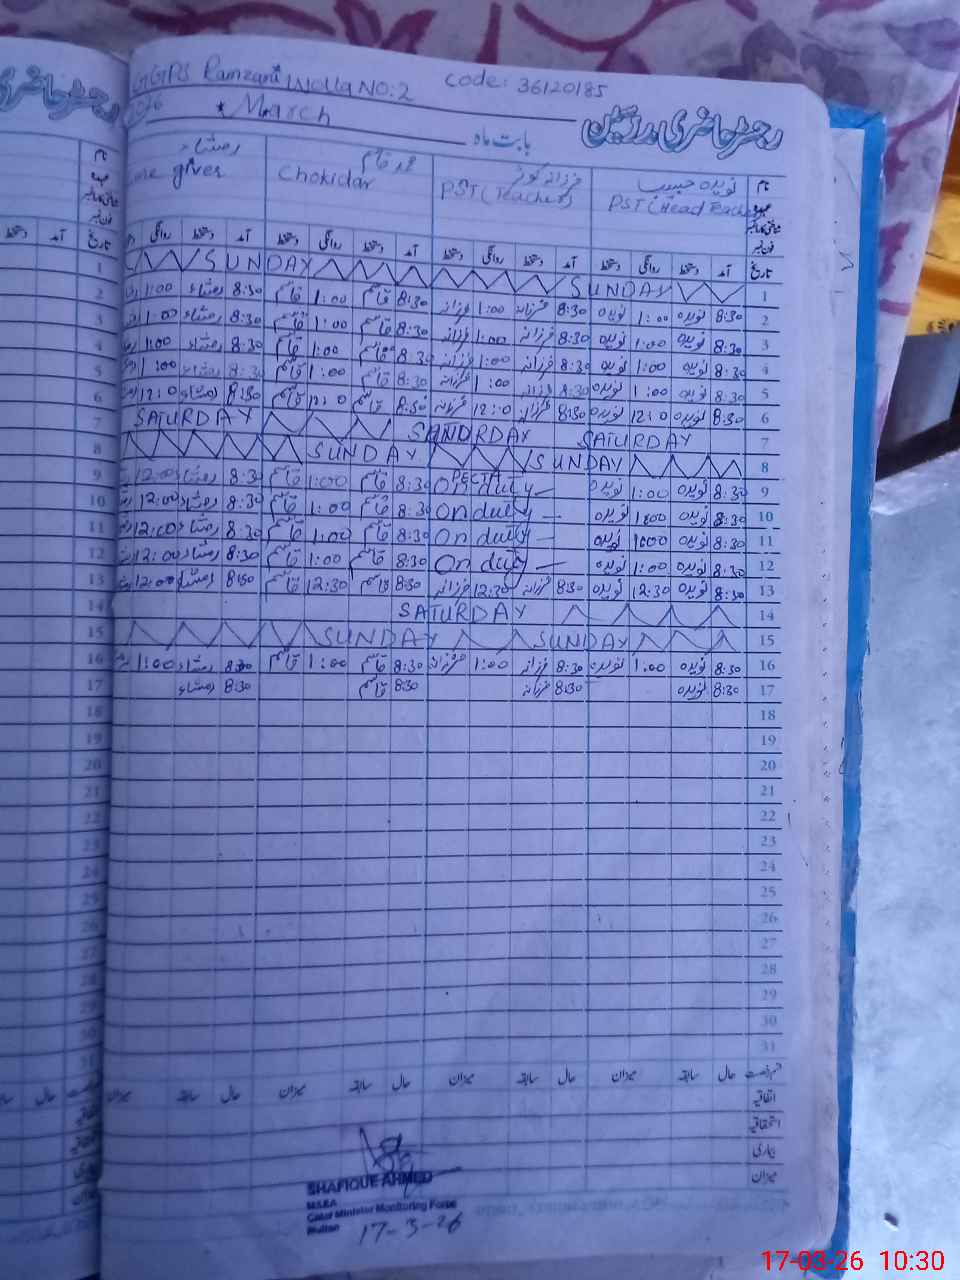 GGPS Ramzani Wolla NO:2 Code: 36120185
2026 March بابت ماہ رجسٹر حاضری مدرسین
نام نویدہ حبیب فرزانہ کوثر محمد قاسم رمشاء
عہدہ PST (Head Teacher) PST (Teacher) Chokidar Care giver
تاریخ آمد دستخط روانگی دستخط آمد دستخط روانگی دستخط آمد دستخط روانگی دستخط آمد دستخط روانگی
1 SUNDAY SUNDAY
2 8:30 نویدہ 1:00 نویدہ 8:30 فرزانہ 1:00 فرزانہ 8:30 قاسم 1:00 قاسم 8:30 رمشاء 1:00
3 8:30 نویدہ 1:00 نویدہ 8:30 فرزانہ 1:00 فرزانہ 8:30 قاسم 1:00 قاسم 8:30 رمشاء 1:00
4 8:30 نویدہ 1:00 نویدہ 8:30 فرزانہ 1:00 فرزانہ 8:30 قاسم 1:00 قاسم 8:30 رمشاء 1:00
5 8:30 نویدہ 1:00 نویدہ 8:30 فرزانہ 1:00 فرزانہ 8:30 قاسم 1:00 قاسم 8:30 رمشاء 1:00
6 8:30 نویدہ 12:0 نویدہ 8:30 فرزانہ 12:0 فرزانہ 8:30 قاسم 12:0 قاسم 8:30 رمشاء 12:0
7 SATURDAY SANDRDAY SATURDAY
8 SUNDAY SUNDAY
9 8:30 نویدہ 1:00 نویدہ On duty PECTA 8:30 قاسم 1:00 قاسم 8:30 رمشاء 12:00
10 8:30 نویدہ 1:00 نویدہ On duty 8:30 قاسم 1:00 قاسم 8:30 رمشاء 12:00
11 8:30 نویدہ 1:00 نویدہ On duty 8:30 قاسم 1:00 قاسم 8:30 رمشاء 12:00
12 8:30 نویدہ 1:00 نویدہ On duty 8:30 قاسم 1:00 قاسم 8:30 رمشاء 12:00
13 8:30 نویدہ 12:30 نویدہ 8:30 فرزانہ 12:30 فرزانہ 8:30 قاسم 12:30 قاسم 8:30 رمشاء 12:00
14 SATURDAY
15 SUNDAY SUNDAY
16 8:30 نویدہ 1:00 نویدہ 8:30 فرزانہ 1:00 فرزانہ 8:30 قاسم 1:00 قاسم 8:30 رمشاء 1:00
17 8:30 نویدہ 8:30 فرزانہ 8:30 قاسم 8:30 رمشاء
18
19
20
21
22
23
24
25
26
27
28
29
30
31
قسم رخصت حال سابقہ میزان حال سابقہ میزان حال سابقہ میزان حال سابقہ میزان
اتفاقیہ
استحقاقیہ
بیماری
میزان
SHAFIQUE AHMED
M&EA
Chief Minister Monitoring Force
Multan
17-3-26
17-03-26 10:30